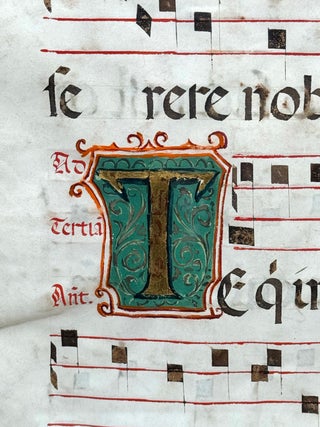 ſe rere nob
Ad
Tertiā
Añt.
TE q̇ in